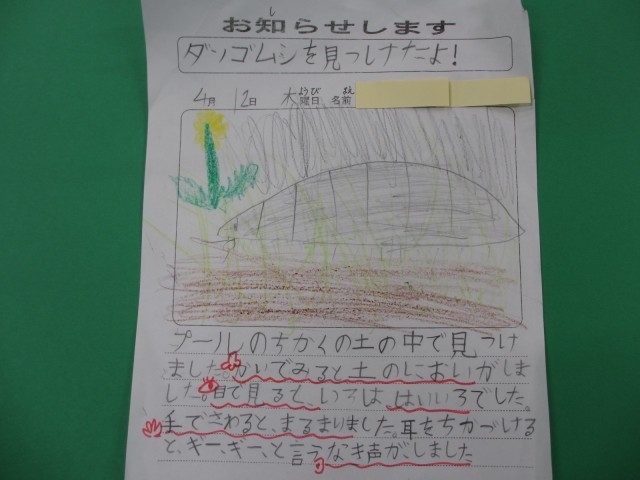 お知らせします
ダンゴムシを見つけたよ!
4月 12日 木曜日 名前
プールのちかくの土の中で見つけ
ました。かいでみると土のにおいがしま
した。目で見ると、いろは、はいいろでした。
手でさわると、まるまりました。耳をちかづける
と、ギー、ギー、と言うなき声がしました